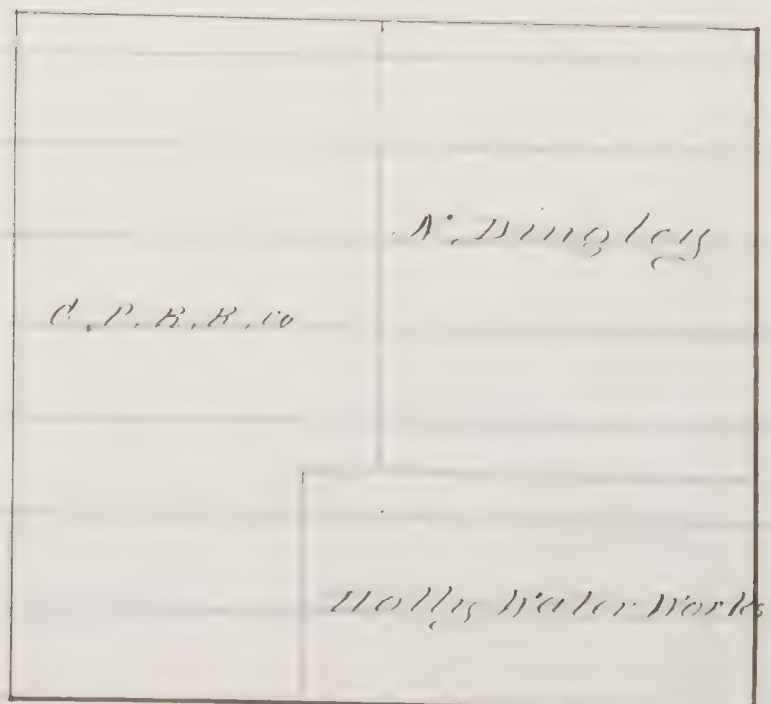 N. Dingley
C. P. R. R. co
Holly Water Works